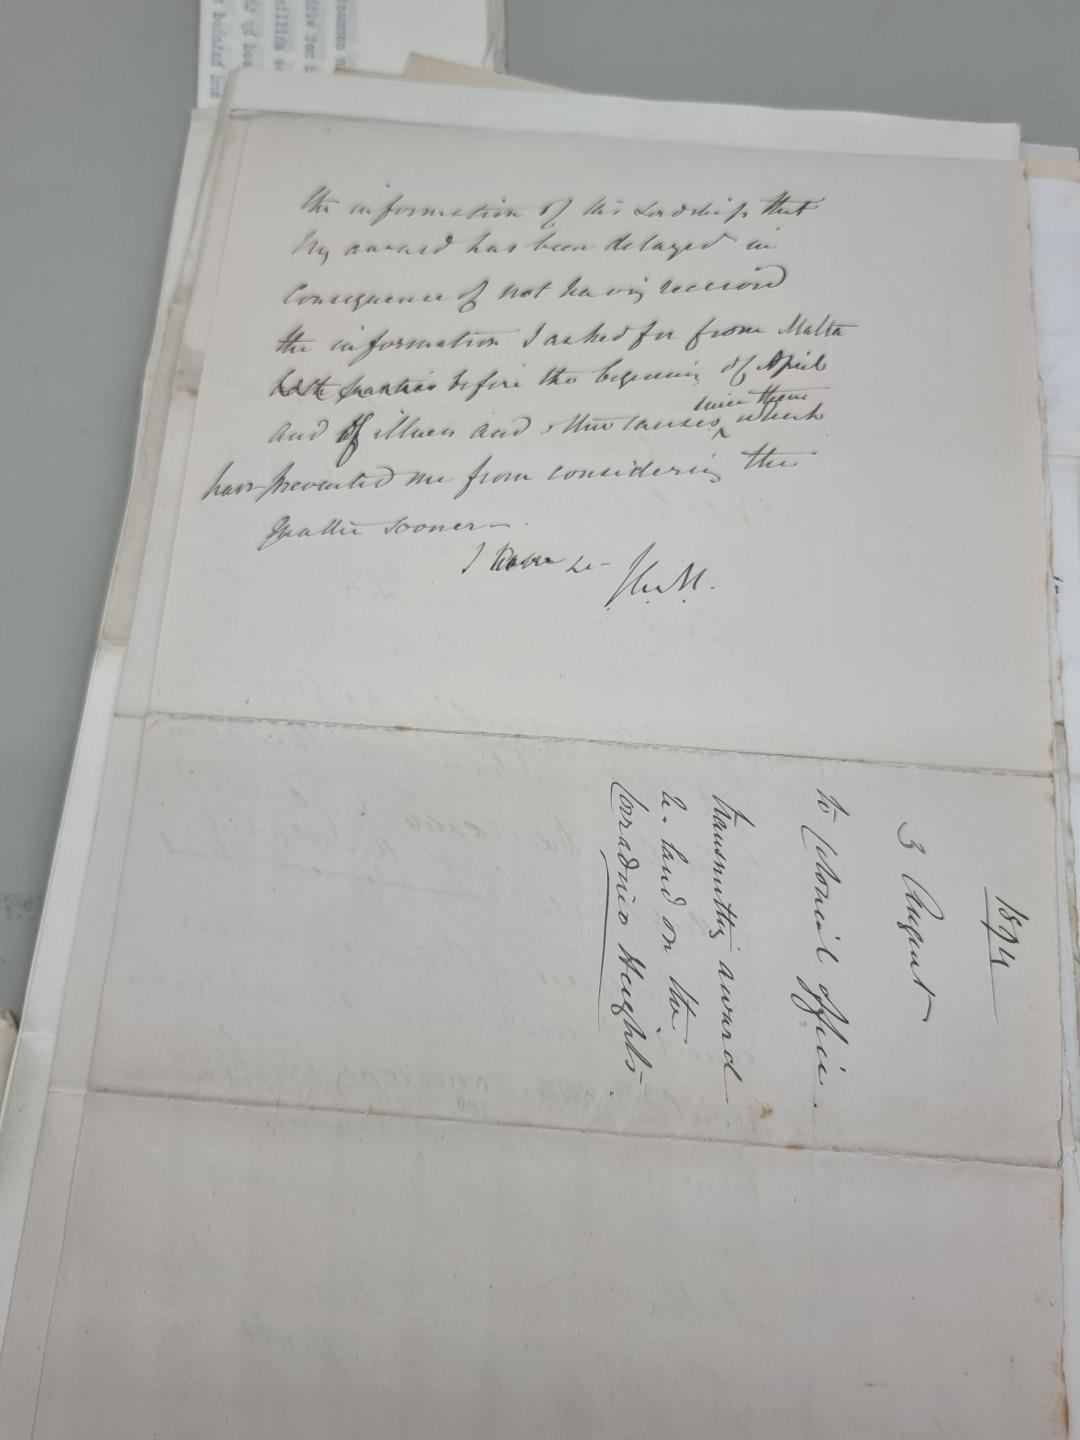 the information of his Lordship that
My award has been delayed in
Consequence of not having received
the information I asked for from Malta
both parties before the beginning of April
since then
and of illness and other causes ^ which
have prevented me from considering the
Matter sooner—
I have &c—
1894
3 August
to Colonial Office.
transmitting award
re. land on the
Corradino Heights.